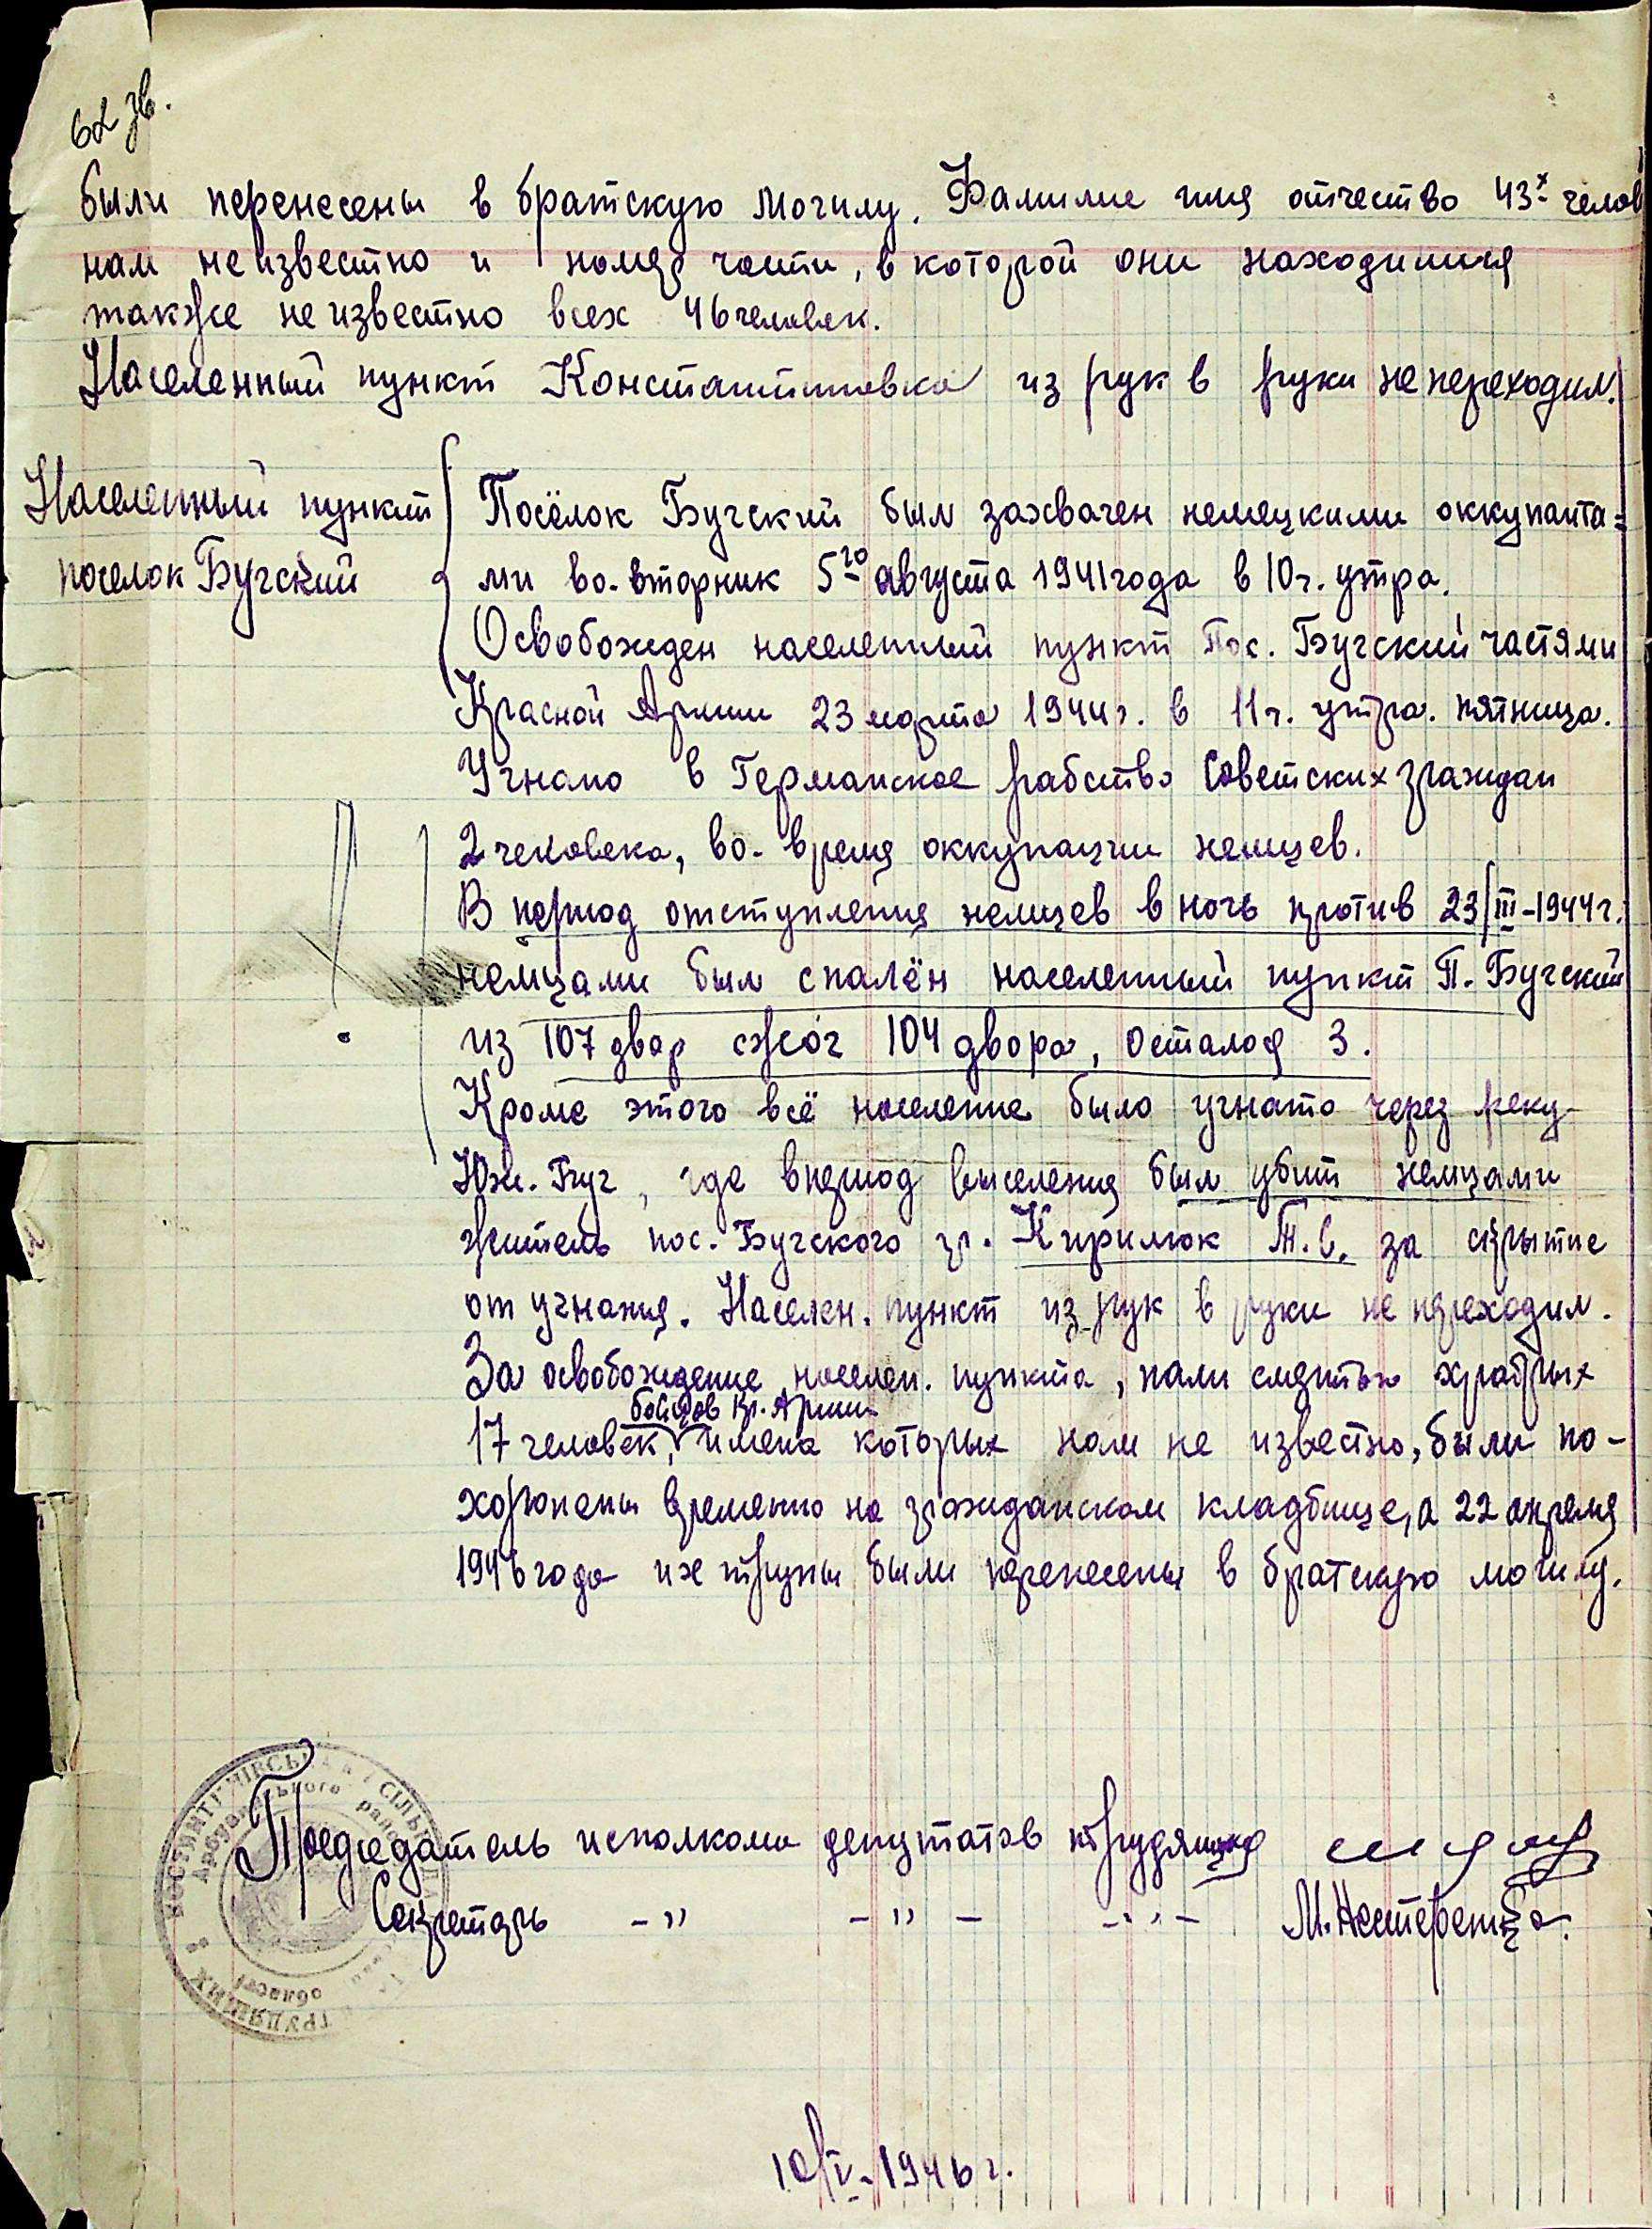 62 зв.
были перенесены в братскую могилу. Фамилие имя отчество 43х челов
нам неизвестно и номер части, в которой они находились
также неизвестно всех 46 человек.
Населенный пункт Константиновка из рук в руки не переходил.
Населенный пункт
поселок Бугский
Посёлок Бугский был захвачен немецкими оккупанта=
ми во-вторник 5го августа 1941 года в 10 ч. утра.
Освобожден населенный пункт Пос. Бугский частями
Красной Армии 23 марта 1944 г. в 11 ч. утра. пятница.
Угнано в Германское рабство Советских граждан
2 человека, во-время оккупации немцев.
В период отступления немцев в ночь против 23/III-1944 г.
немцами был спалён населенный пункт П. Бугский
из 107 двор сжог 104 двора, осталося 3.
Кроме этого всё население было угнато через реку
Юж. Буг, где в период выселения был убит немцами
житель пос. Бугского гр. Кирилюк Т. С. за скрытие
от угнания. Населен. пункт из рук в руки не переходил.
За освобождение населен. пункта, пали смертью храбрых
бойцов Кр. Армии
17 человек, имена которых нам не известно, были по-
хоронены временно на гражданском кладбище, а 22 апреля
1946 года их трупы были перенесены в братскую могилу.
Председатель исполкома депутатов трудящихся
Секретарь -"- -"- -"- М. Нестеренко
трудящих
області
10/V-1946 г.